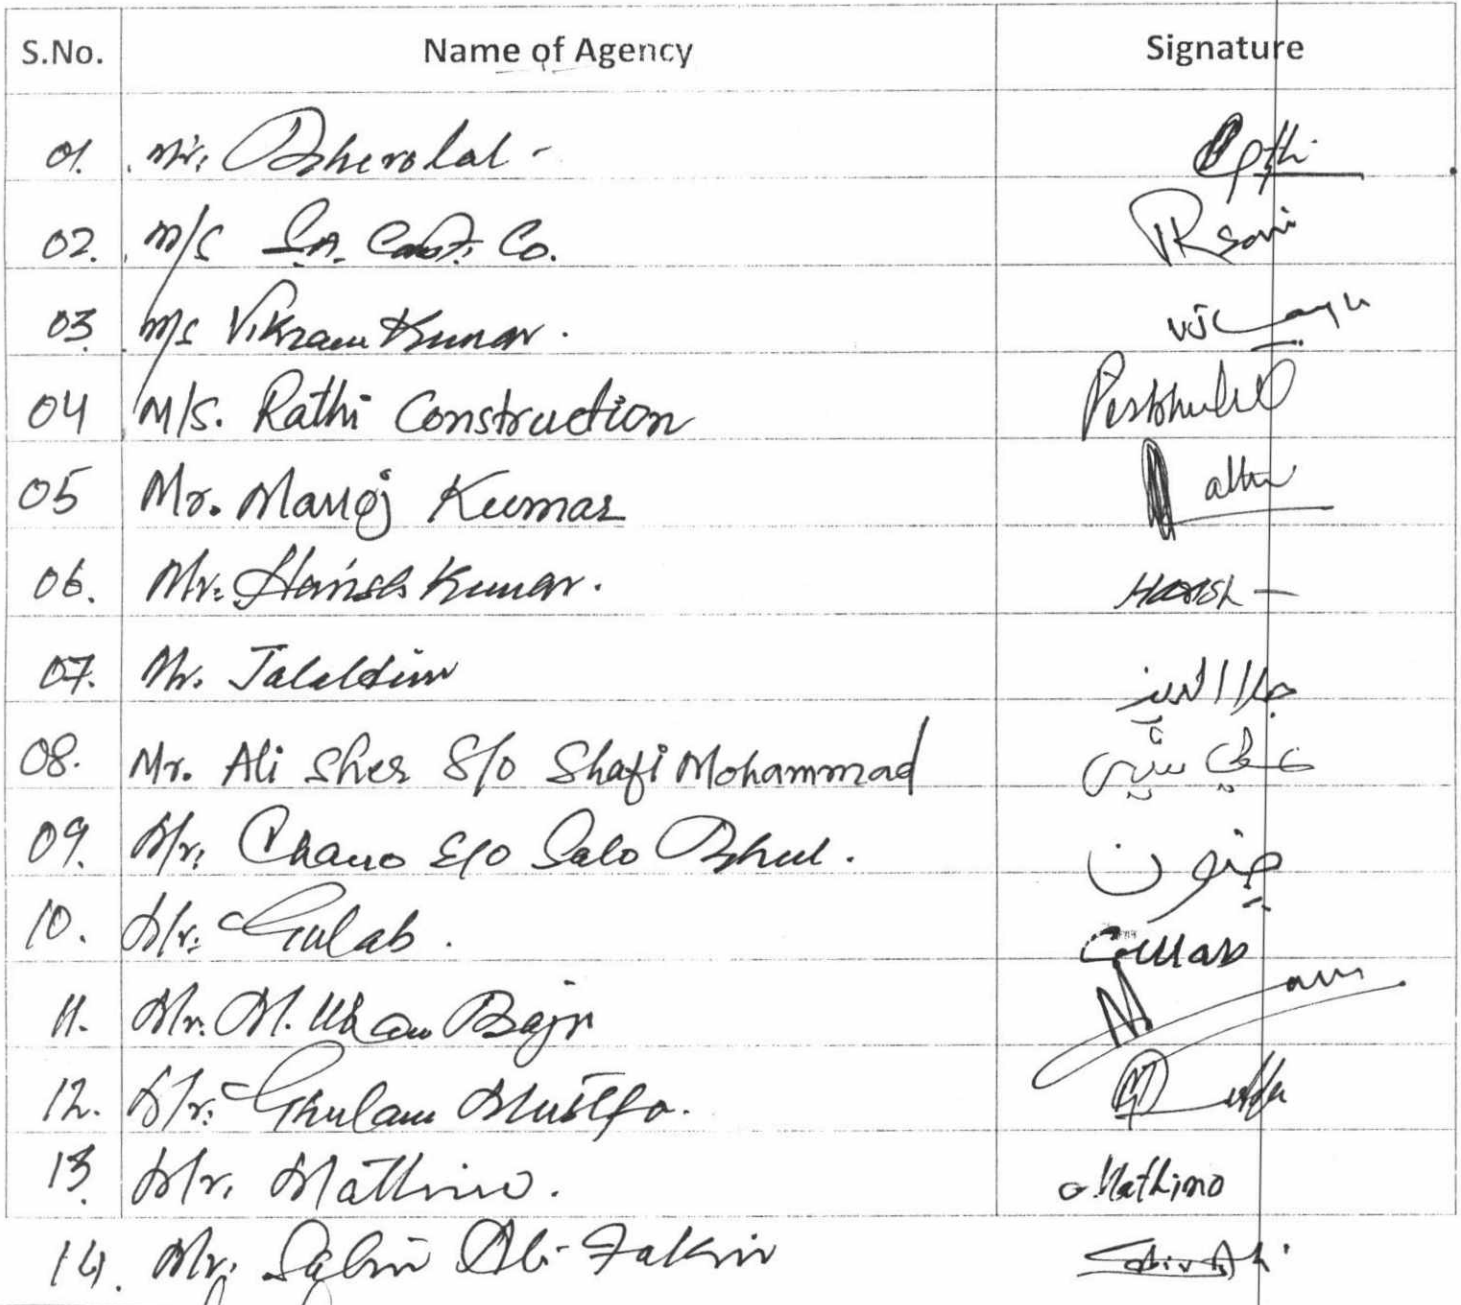 S.No. Name of Agency Signature
01. Mr. Bherolal -
02. M/S S.A. Const. Co. PK Soni
03. M/S Vikram Kumar.
04 M/S. Rathi Construction
05 Mr. Manoj Kumar
06. Mr. Harish Kumar. Harish
07. Mr. Jalaldin جلال الدين
08. Mr. Ali Sher S/o Shafi Mohammad علي شير
09. Mr. Chano S/o Salo Bhul.
10. Mr. Gulab. Gulab
11. Mr. M. Khan Bajir
12. Mr. Ghulam Mustfa.
13. Mr. Mathino. Mathino
14. Mr. Sabir Ali Fakir Sabir Ali